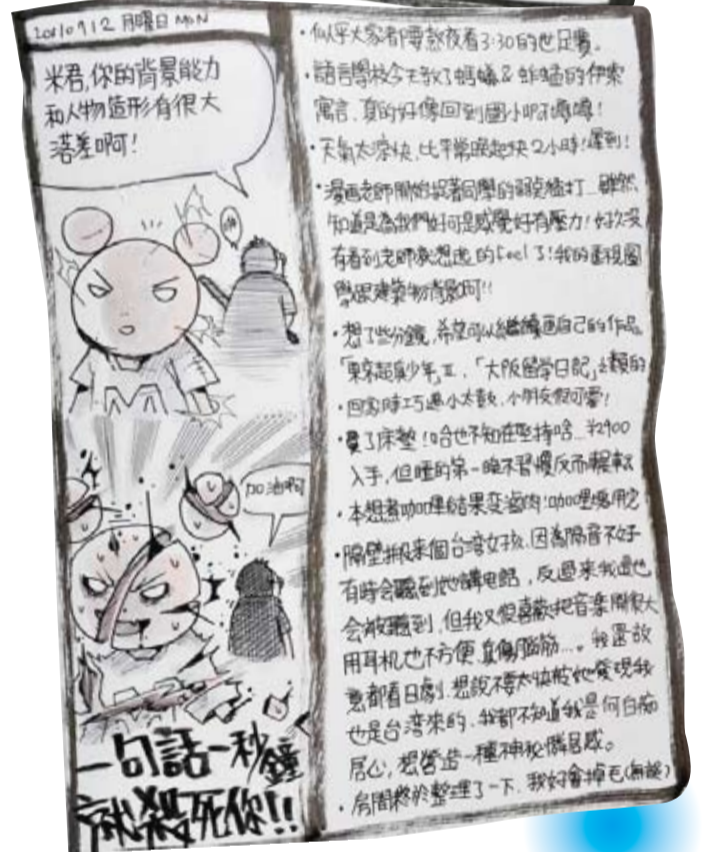 2010/9/12 月曜日 MON
米君,你的背景能力
和人物造形有很大
落差啊!
加油啊
一句話一秒鐘
就殺死你!!
・似乎大家都要熬夜看3:30的世足賽。
・語言學校今天教了螞蟻&蚱蜢的伊索
寓言,真的好像回到國小
・天氣太涼快,比平常晚起快2小時!遲到!
・漫画老師開始捉著同學的弱點猛打…雖然
知道是為我們好可是感覺好有壓力!好久沒
有看到老師就想逃的feel了!我的透視圖
學跟建築物背景啊!!
・想了些分鏡,希望可以繼續画自己的作品
少年」Ⅱ,「大阪留学日記」之類的
・回家時巧遇小太鼓,小朋友很可愛!
・買了床墊!哈也不知在堅持啥…¥2900
入手,但睡的第一晚不習慣反而輾轉
・本想煮咖哩結果变滷肉:咖哩塊用完
・隔壁搬來個台湾女孩,因為隔音不好
有時会聽到她講電話,反過來我這也
会被聽到,但我又很喜歡把音楽開很大
用耳机也不方便,真傷腦筋…。我還故
意都看日劇,想說不要太快被她發現我
也是台湾來的,我都不知道我是何白痴
居心,想營造一種神秘鄰居感。
・房間終於整理了一下,我好會掉毛(無誤)